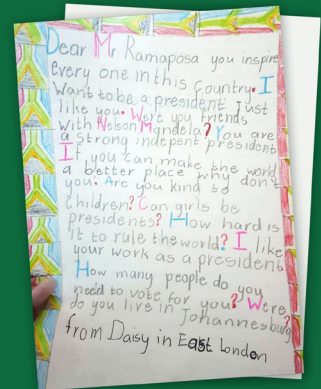 Dear Mr Ramaposa you inspire
every one in this country. I
Want to be a president Just
like you. Were you friends
with Nelson Mandela? You are
a strong indepent president
If you can make the world
a better place why don't
you. Are you kind to
children? Can girls be
presidents? How hard is
it to rule the world? I like
your work as a president
How many people do you
need to vote for you? Were
do you live in Johannesburg?
from Daisy in East London